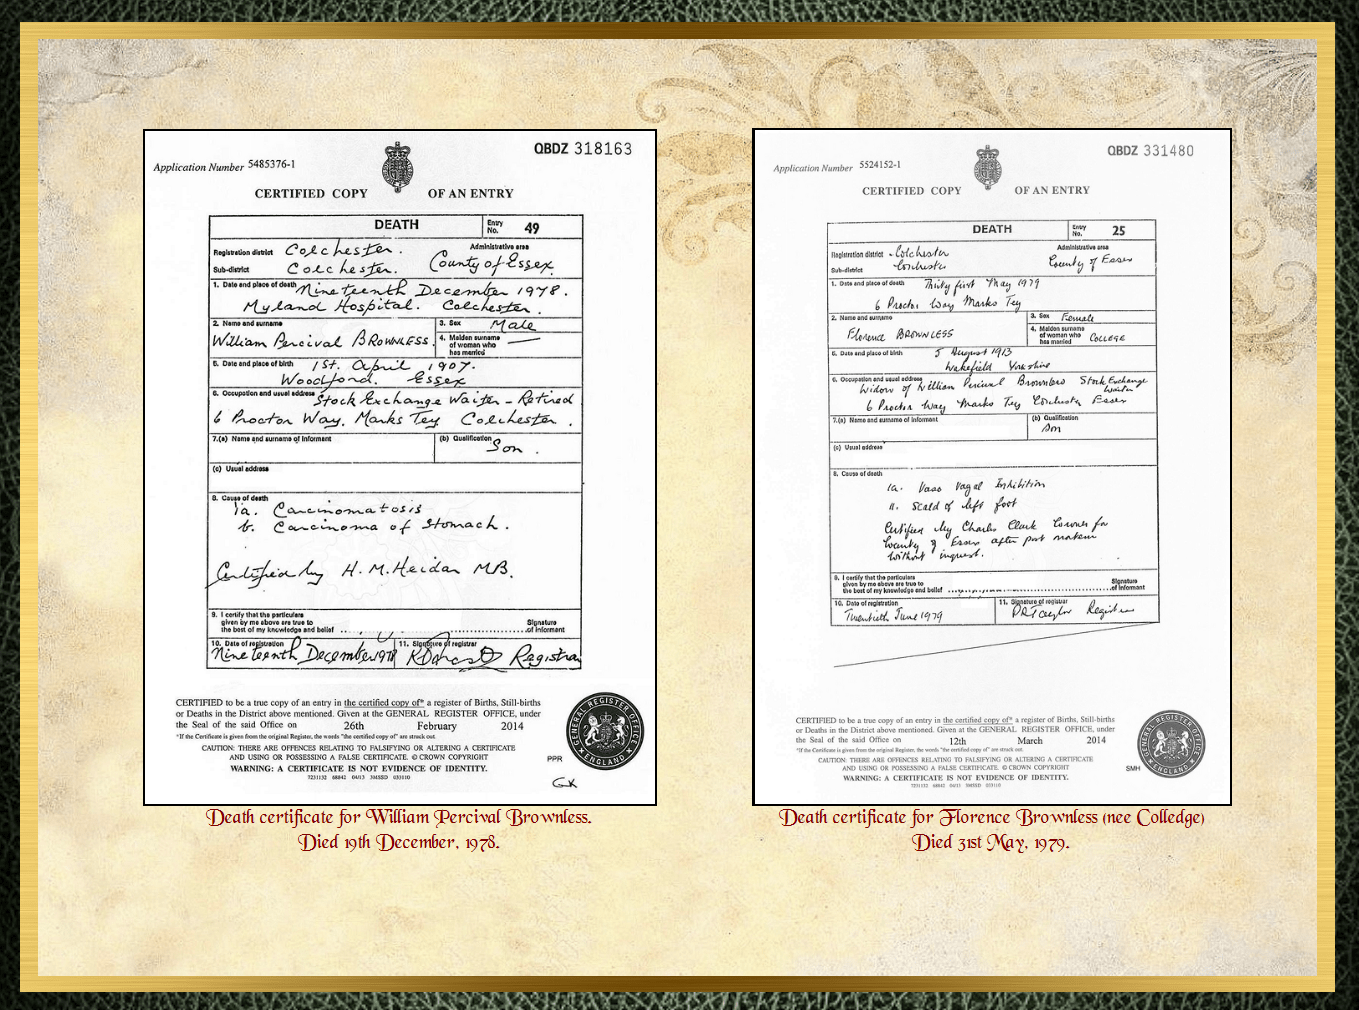 Application Number 5485376-1
QBDZ 318163
CERTIFIED COPY OF AN ENTRY
DEATH
Entry No. 49
Registration district Colchester.
Administrative area
Sub-district Colchester.
County of Essex.
1. Date and place of death Nineteenth December 1978.
Myland Hospital. Colchester.
2. Name and surname
William Percival BROWNLESS.
3. Sex Male
4. Maiden surname
of woman who
has married
5. Date and place of birth 1st. April 1907.
Woodford. Essex
6. Occupation and usual address Stock Exchange Waiter - Retired
6 Proctor Way. Marks Tey Colchester.
7.(a) Name and surname of informant
(b) Qualification Son.
(c) Usual address
8. Cause of death
1a. Carcinomatosis
b. Carcinoma of Stomach.
Certified by H. M. Heidan MB.
9. I certify that the particulars
given by me above are true to
the best of my knowledge and belief
Signature
of informant
10. Date of registration
Nineteenth December 1978
11. Signature of registrar
Registrar
CERTIFIED to be a true copy of an entry in the certified copy of* a register of Births, Still-births
or Deaths in the District above mentioned. Given at the GENERAL REGISTER OFFICE, under
the Seal of the said Office on 26th February 2014
*If the Certificate is given from the original Register, the words "the certified copy of" are struck out.
CAUTION: THERE ARE OFFENCES RELATING TO FALSIFYING OR ALTERING A CERTIFICATE
AND USING OR POSSESSING A FALSE CERTIFICATE. © CROWN COPYRIGHT
WARNING: A CERTIFICATE IS NOT EVIDENCE OF IDENTITY.
PPR
GENERAL REGISTER OFFICE
ENGLAND
GK
Death certificate for William Percival Brownless.
Died 19th December, 1978.
Application Number 5524152-1
QBDZ 331480
CERTIFIED COPY OF AN ENTRY
DEATH
Entry No. 25
Registration district Colchester
Administrative area
Sub-district Colchester
County of Essex
1. Date and place of death Thirty first May 1979
6 Proctor Way Marks Tey
2. Name and surname
Florence BROWNLESS
3. Sex Female
4. Maiden surname
of woman who
has married COLLEGE
5. Date and place of birth 5 August 1913
Wakefield Yorkshire
6. Occupation and usual address
Widow of William Percival Brownless Stock Exchange
Waiter
6 Proctor Way Marks Tey Colchester Essex
7.(a) Name and surname of informant
(b) Qualification
Son
(c) Usual address
8. Cause of death
1a. Vaso Vagal Inhibition
11. Scald of left foot
Certified by Charles Clark Coroner for
County of Essex after post mortem
without inquest.
9. I certify that the particulars
given by me above are true to
the best of my knowledge and belief
Signature
of informant
10. Date of registration
Twentieth June 1979
11. Signature of registrar
Taylor Registrar
CERTIFIED to be a true copy of an entry in the certified copy of* a register of Births, Still-births
or Deaths in the District above mentioned. Given at the GENERAL REGISTER OFFICE, under
the Seal of the said Office on 12th March 2014
*If the Certificate is given from the original Register, the words "the certified copy of" are struck out.
CAUTION: THERE ARE OFFENCES RELATING TO FALSIFYING OR ALTERING A CERTIFICATE
AND USING OR POSSESSING A FALSE CERTIFICATE. © CROWN COPYRIGHT
WARNING: A CERTIFICATE IS NOT EVIDENCE OF IDENTITY.
SMH
GENERAL REGISTER OFFICE
ENGLAND
Death certificate for Florence Brownless (nee Colledge)
Died 31st May, 1979.